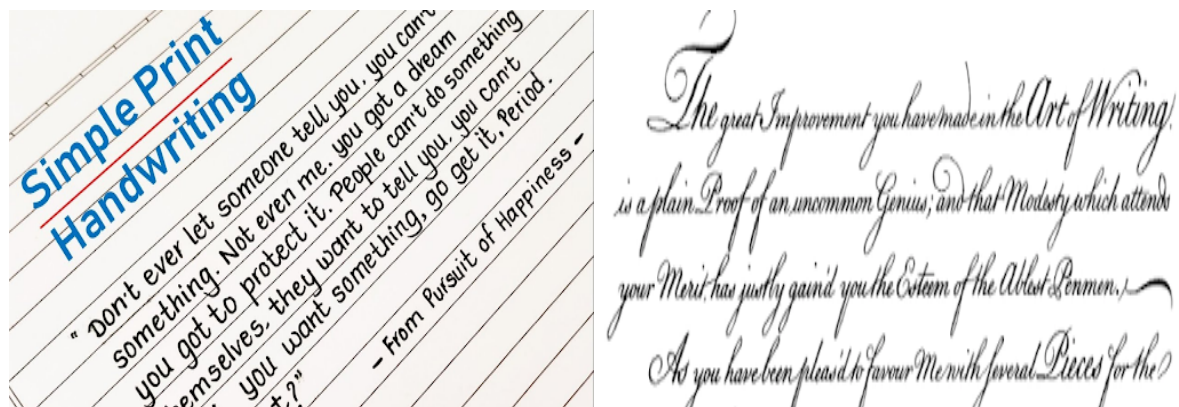 Simple Print
Handwriting
" Don't ever let someone tell you, you can't
something. Not even me. you got a dream
you got to protect it. People can't do something
themselves, they want to tell you, you can't
you want something, go get it, Period.
?"
- From Pursuit of Happiness -
The great Improvement you have made in the Art of Writing,
is a plain Proof of an uncommon Genius; and that Modesty which attends
your Merit, has justly gain'd you the Esteem of the Ablest Penmen.
As you have been pleas'd to favour Me with several Pieces for the